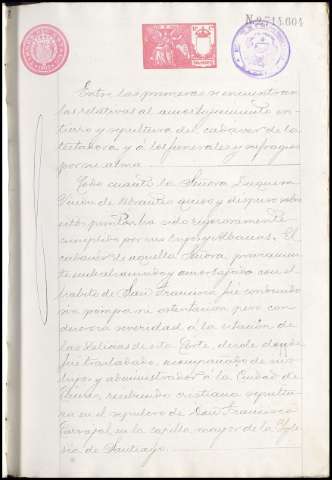 N. 2.714.604
Entre las primeras se encuentran
las relativas al amortajamiento en-
tierro y sepultura del cadaver de la
testadora y á los funerales y sufragios
por su alma.
Todo cuanto la Señora Duquesa
Viuda de Abrantes quiso y dispuso sobre
estos puntos ha sido rigurosamente
cumplido por sus hijos y Albaceas. El
cadaver de aquella Señora,
embalsamado y amortajado con el
habito de San Francisco, fué conducido
sin pompa ni ostentacion pero con
severidad á la estacion de
las Delicias de esta Corte, desde donde
fué trasladado, acompañado de sus
hijos y administrador á la Ciudad de
recibiendo cristiana sepultu-
ra en el sepulcro de Don Francisco
Carvajal en la capilla mayor de la Igle-
sia de Santiago.